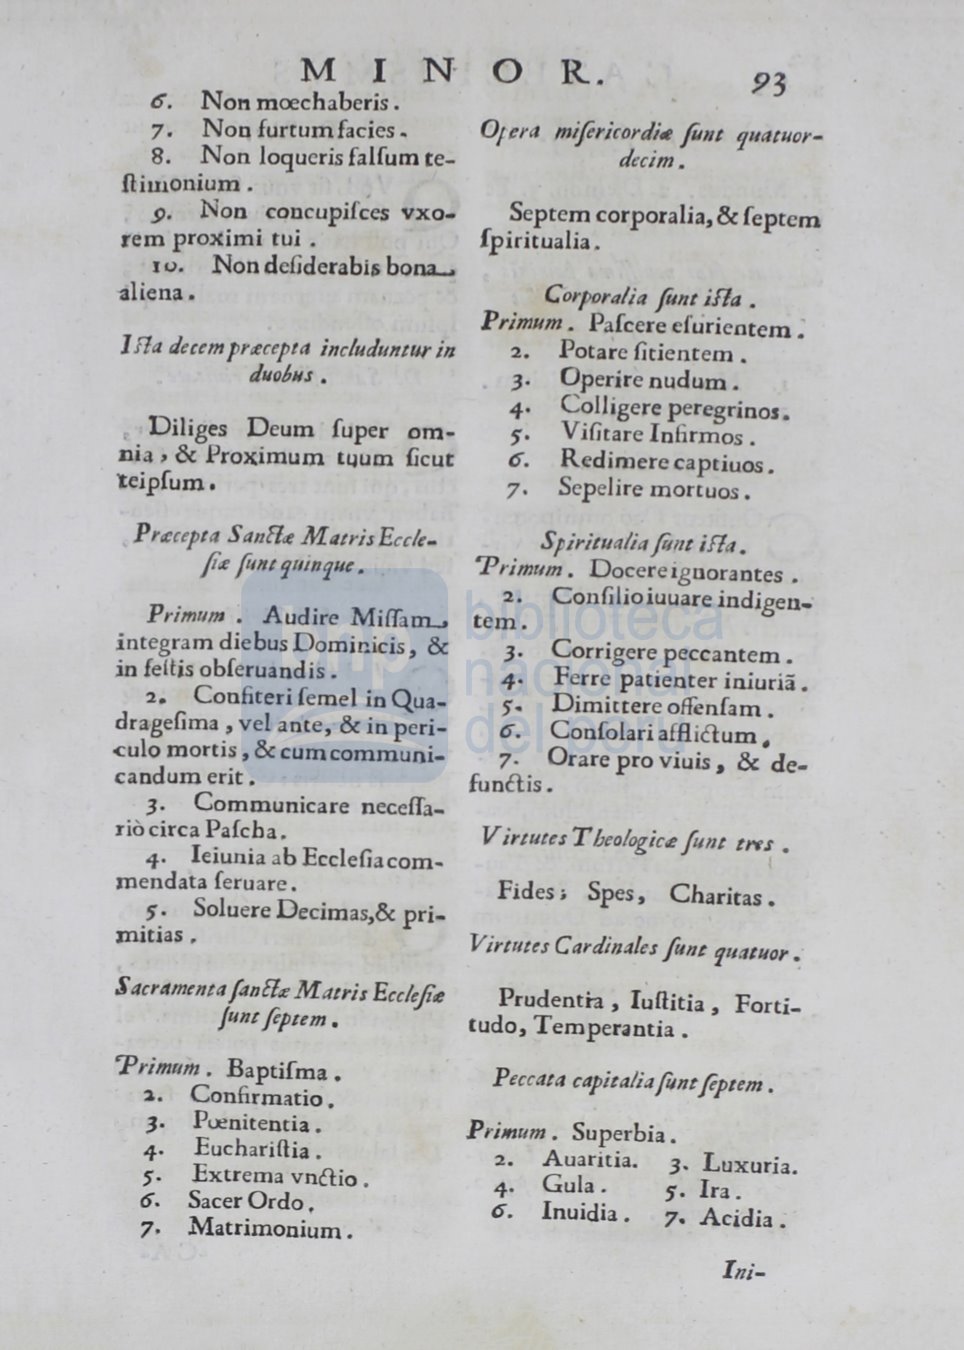 MINOR. 93
6. Non mœchaberis.
7. Non furtum facies.
8. Non loqueris falſum te-
ſtimonium.
9. Non concupiſces vxo-
rem proximi tui.
10. Non deſiderabis bona
aliena.
Iſta decem præcepta includuntur in
duobus.
Diliges Deum ſuper om-
nia, & Proximum tuum ſicut
teipſum.
Præcepta Sanctæ Matris Eccle-
ſiæ ſunt quinque.
Primum. Audire Miſſam
integram diebus Dominicis, &
in feſtis obſeruandis.
2. Confiteri ſemel in Qua-
drageſima, vel ante, & in peri-
culo mortis, & cum communi-
candum erit.
3. Communicare neceſſa-
riò circa Paſcha.
4. Ieiunia ab Eccleſia com-
mendata ſeruare.
5. Soluere Decimas, & pri-
mitias.
Sacramenta ſanctæ Matris Eccleſiæ
ſunt ſeptem.
Primum. Baptiſma.
2. Confirmatio.
3. Pœnitentia.
4. Euchariſtia.
5. Extrema vnctio.
6. Sacer Ordo.
7. Matrimonium.
Opera miſericordiæ ſunt quatuor-
decim.
Septem corporalia, & ſeptem
ſpiritualia.
Corporalia ſunt iſta.
Primum. Paſcere eſurientem.
2. Potare ſitientem.
3. Operire nudum.
4. Colligere peregrinos.
5. Viſitare Infirmos.
6. Redimere captiuos.
7. Sepelire mortuos.
Spiritualia ſunt iſta.
Primum. Docere ignorantes.
2. Conſilio iuuare indigen-
tem.
3. Corrigere peccantem.
4. Ferre patienter iniuriã.
5. Dimittere offenſam.
6. Conſolari afflictum.
7. Orare pro viuis, & de-
functis.
Virtutes Theologicæ ſunt tres.
Fides; Spes, Charitas.
Virtutes Cardinales ſunt quatuor.
Prudentia, Iuſtitia, Forti-
tudo, Temperantia.
Peccata capitalia ſunt ſeptem.
Primum. Superbia.
2. Auaritia. 3. Luxuria.
4. Gula. 5. Ira.
6. Inuidia. 7. Acidia.
Ini-
bnp
biblioteca
nacional
del perú